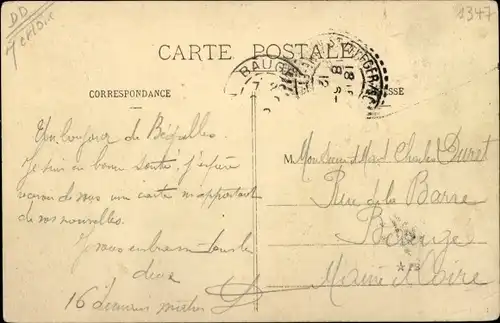 DD
1347
CARTE POSTALE
BAUGÉ
CORRESPONDANCE
Un bonjour de Bégrolles.
Je suis en bonne santé j'espère
recevoir de vous une carte m'apportant
de vos nouvelles.
Je vous embrasse tous les
deux
16
M. Monsieur Mad Charles Duret
Rue de la Barre
Baugé
Maine et Loire